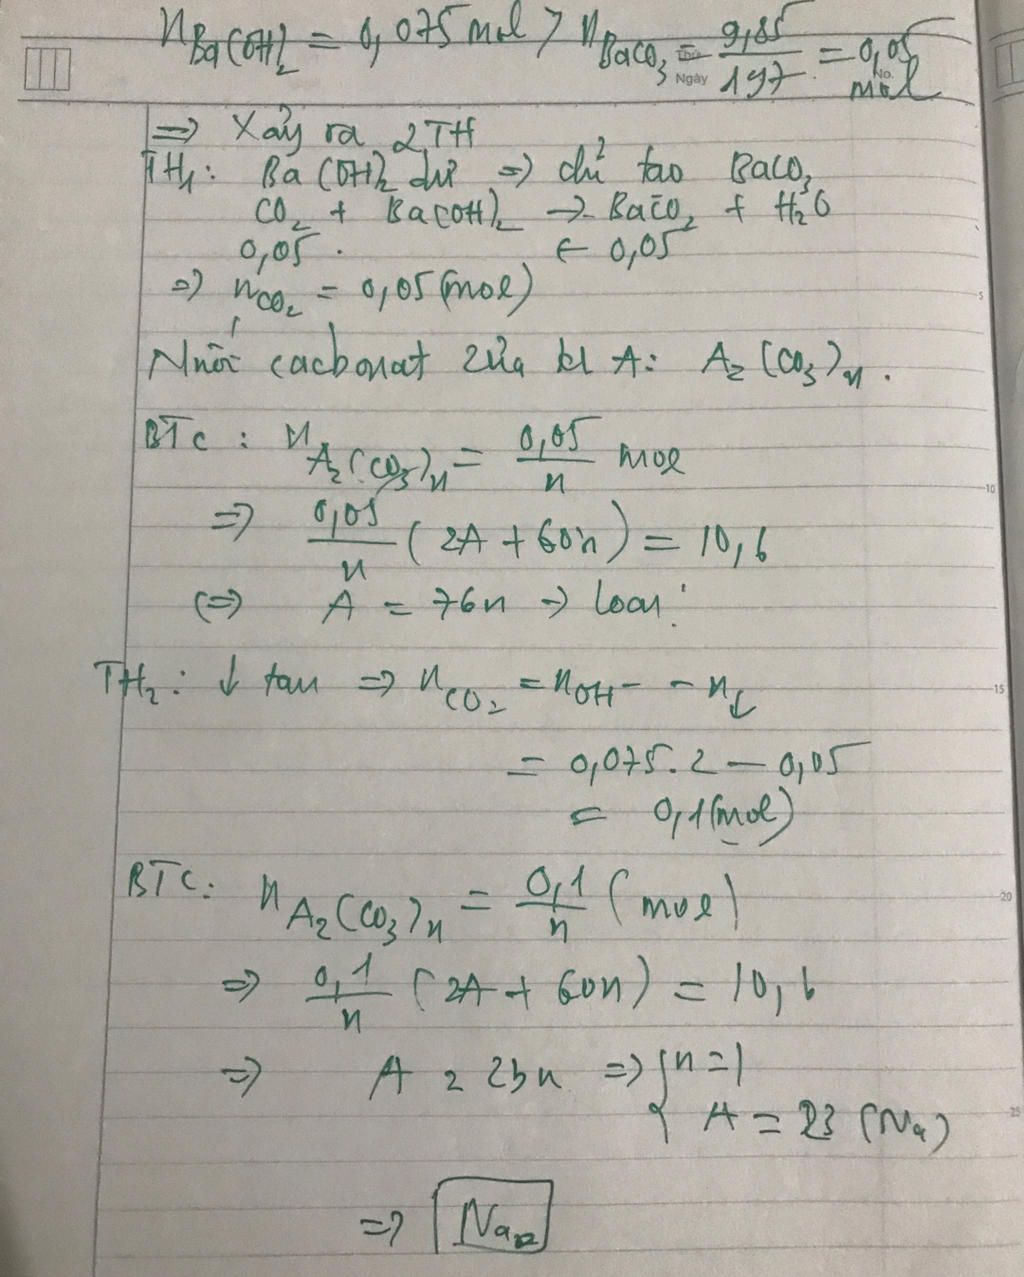 nBa(OH)2 = 0,075 mol > nBaCO3 = 9,85/197 = 0,05 mol
Thứ
Ngày
No.
=> Xảy ra 2TH
TH1: Ba(OH)2 dư => chỉ tạo BaCO3
CO2 + Ba(OH)2 -> BaCO2 + H2O
0,05 . ← 0,05
=> nCO2 = 0,05 (mol)
Muối cacbonat của kl A: A2(CO3)n.
BTC: nA2(CO3)n = 0,05/n mol
=> 0,05/n (2A + 60n) = 10,6
<=> A = 76n -> Loại!
TH2: ↓ tan => nCO2 = nOH- - n↓
= 0,075.2 - 0,05
= 0,1 (mol)
BTC: nA2(CO3)n = 0,1/n (mol)
=> 0,1/n (2A + 60n) = 10,6
=> A = 23n => { n = 1
A = 23 (Na)
=> Na
5
10
15
20
25